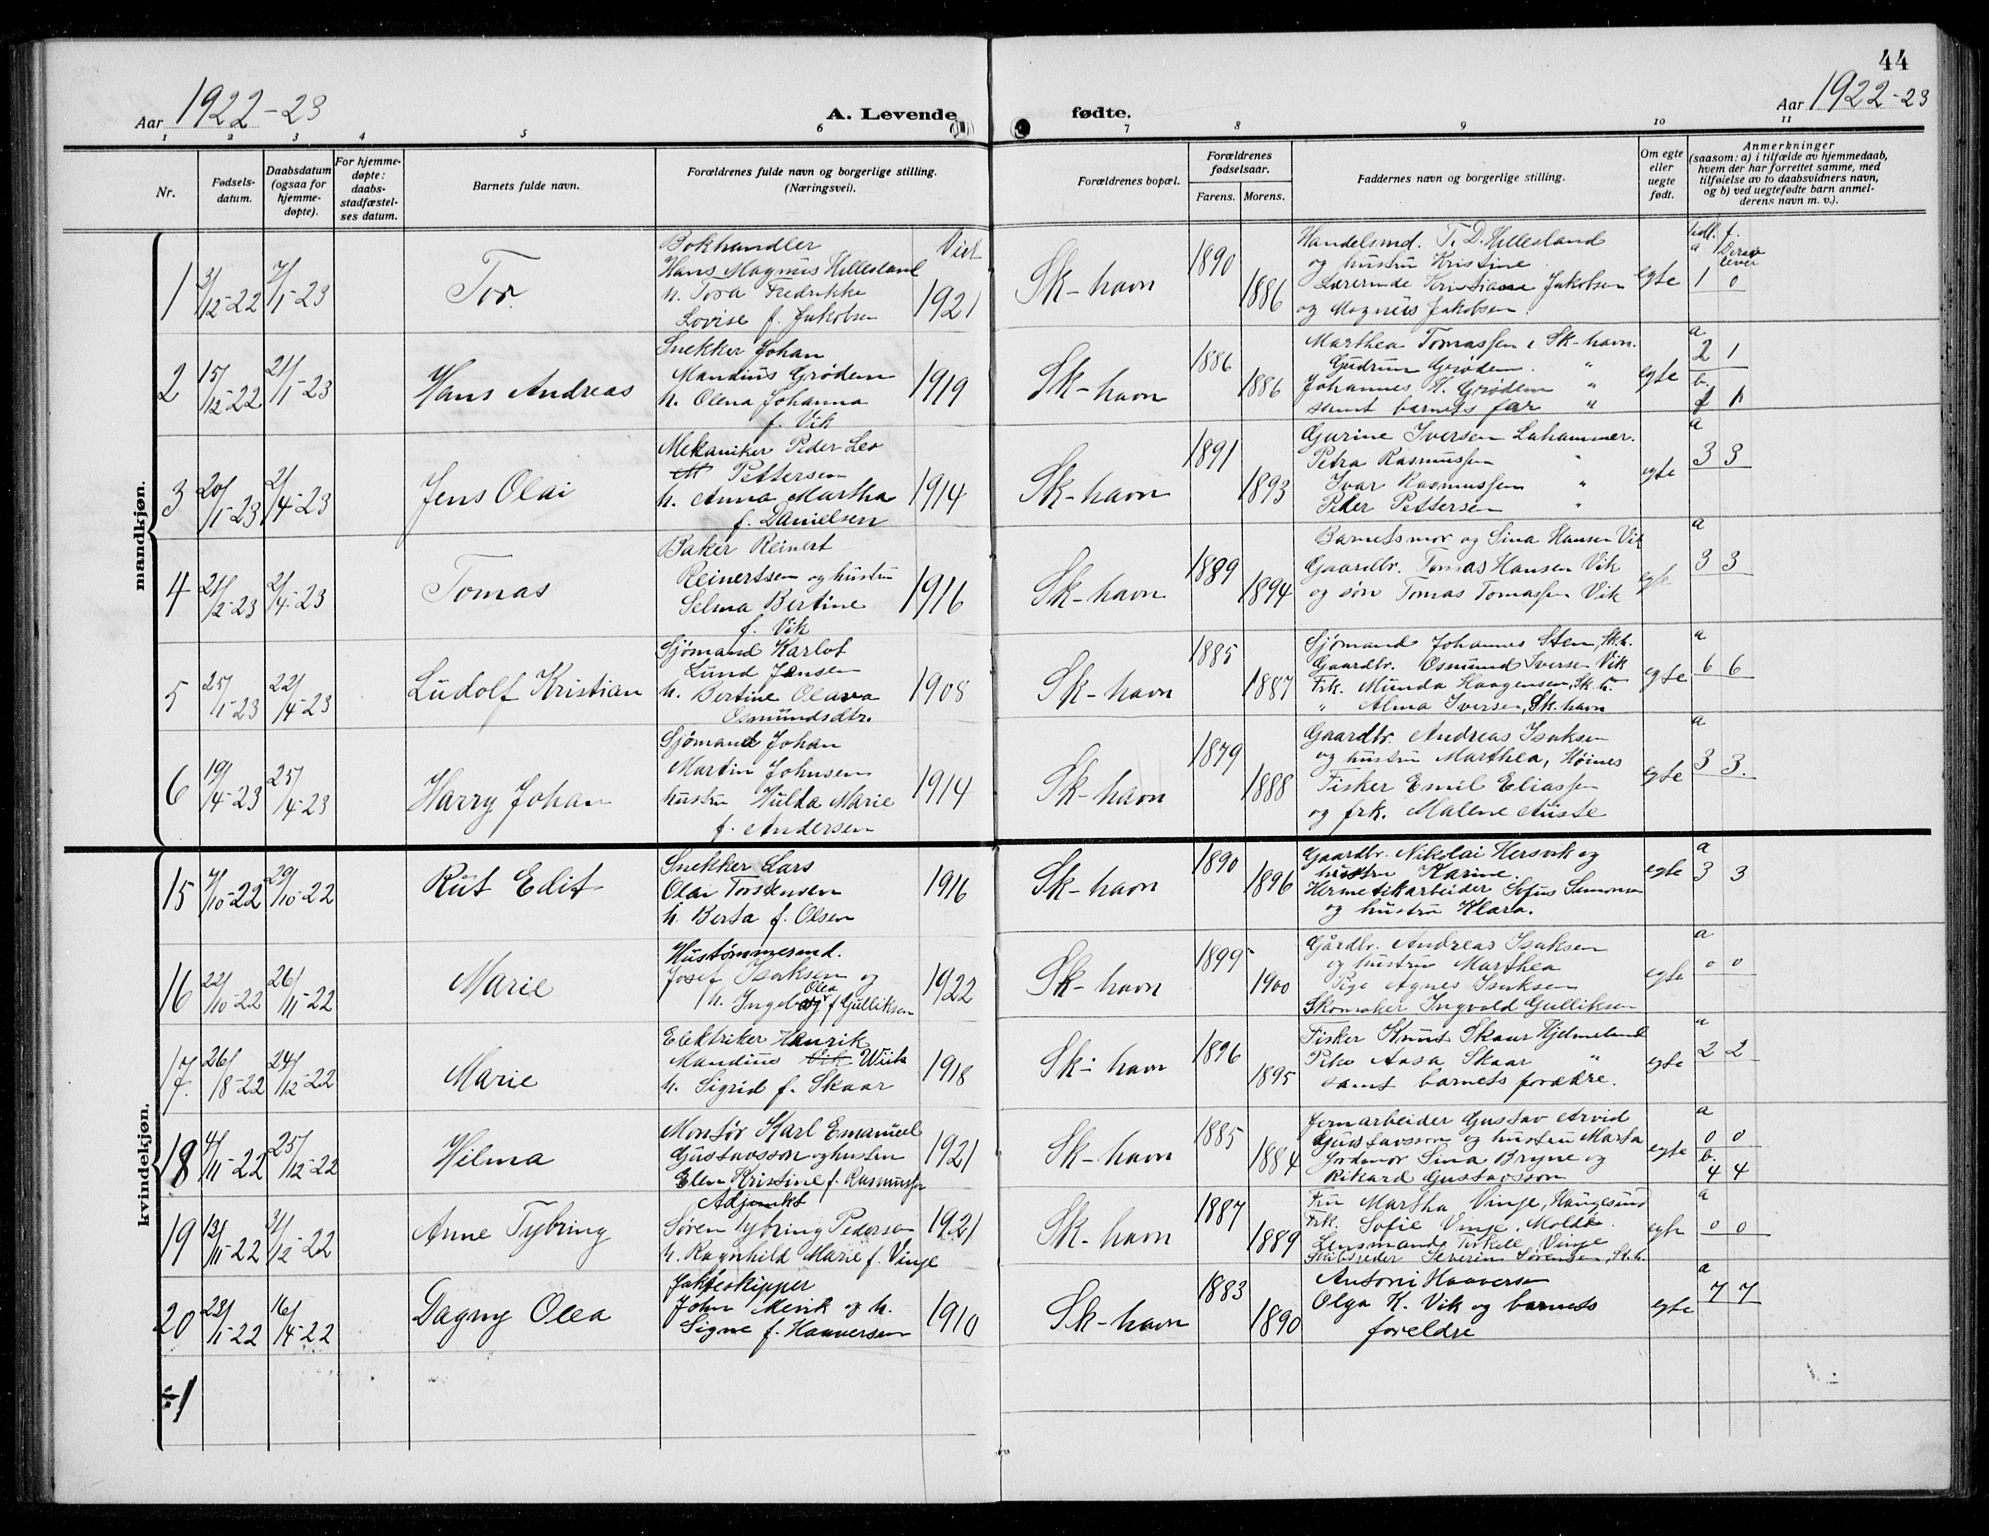 44
Aar 1922-23
A. Levende
fødte.
Aar 1922-23
1 2 3 4 5 6 7 8 9 10 11
Nr.
Fødsels-
datum.
Daabsdatum
(ogsaa for
hjemme-
døpte).
For hjemme-
døpte:
daabs-
stadfæstel-
ses datum.
Barnets fulde navn.
Forældrenes fulde navn og borgerlige stilling.
(Næringsvei).
Forældrenes bopæl.
Forældrenes
fødselsaar.
Farens. Morens.
Faddernes navn og borgerlige stilling.
Om egte
eller
uegte
født.
Anmerkninger
(saasom: a) i tilfælde av hjemmedaab,
hvem der har forrettet samme, med
tilføielse av to daabsvidners navn,
og b) ved uegtefødte barn anmel-
derens navn m. v.).
mandkjøn.
1 3/12-22 7/1-23 Tor.
Bokhandler
Hans Magnus Hillesland
h. Tora Fredrikke
Lovise f. Jakobsen
Viet
1921
Sk-havn 1890 1886
Handelsmd. T. D. Hillesland
og hustru Kristine
Lærerinde Kristiane Jakobsen
og Magnus Jakobsen
egte
tidl. f.
Derav
lever
a 1 0
2 15/12-22 21/1-23 Hans Andreas
Snekker Johan
Mandius Grødem
h. Olena Johanna
f. Vik
1919
Sk-havn 1886 1886
Marthea Tomassen, Sk-havn.
Gudrun Grødem "
Johannes H. Grødem "
samt barnets far "
egte
a 2 1
b. 1 1
3 20/1-23 2/4-23 Jens Olai
Mekaniker Peder Leo
Pettersen
h. Anna Martha
f. Danielsen
1914
Sk-havn 1891 1893
Gurine Iversen Lahammer.
Petra Rasmussen "
Ivar Rasmussen "
Peder Pettersen "
egte
a 3 3
4 21/2-23 2/4-23 Tomas
Baker Reinert
Reinertsen og hustru
Selma Bertine
f. Vik
1916
Sk-havn 1889 1894
Barnets mor og Sina Hansen Vik
Gaardbr. Tomas Hansen Vik
og søn Tomas Tomassen Vik
egte
a 3 3
5 25/1-23 22/4-23 Ludolf Kristian
Sjømand Karlot
Lund Jensen
h. Bertine Olava
Osmundsdtr.
1908
Sk-havn 1885 1887
Sjømand Johannes Sten, Sk.h.
Gaardbr. Osmund Iversen Vik
Frk. Munda Haagensen, Sk.h.
" Alma Iversen, Sk.havn
egte
a 6 6
6 19/4-23 25/4-23 Harry Johan
Sjømand Johan
Martin Johnsen
hustru Hulda Marie
f. Andersen
1914
Sk-havn 1879 1888
Gaardbr. Andreas Isaksen
og hustru Marthea, Høines
Fisker Emil Eliassen
og frk. Malene Auste
egte
a 3 3.
kvindekjøn.
15 7/10-22 29/10-22 Rut Edit
Snekker Lars
Olai Torstensen
h. Berta f. Olsen
1916
Sk-havn 1890 1896
Gaardbr. Nikolai Hersvik og
hustru Karine.
Hermetikarbeider Sofus Samonsen
og hustru Klara.
egte
a 3 3
16 22/10-22 26/11-22 Marie
Hustømmermd.
Josef Isaksen og
h. Ingeborg Olea f Gulliksen
1922
Sk-havn 1899 1900
Gårdbr. Andreas Isaksen
og hustru Marthea
Pige Agnes Isaksen
Skomaker Ingvald Gulliksen
egte
a 0 0
17. 26/8-22 24/12-22 Marie
Elektriker Henrik
Mandius Vik Wiik
h. Sigrid f. Skaar
1918
Sk-havn 1896 1895
Fisker Knut Skaar Hjelmeland
Pike Aasa Skaar "
samt barnets forældre.
egte
a 2 2
18 4/11-22 25/12-22 Hilma
Montør Karl Emanuel
Gustavsson og hustru
Elen Kristine f. Rasmussen
1921
Sk-havn 1885 1884
Jernarbeider Gustav Arvid
Gustavsson og hustru Marta
Jordmor Sina Bryne og
Rikard Gustavsson
egte
a 0 0
b. 4 4
19 13/11-22 31/12-22 Anne Tybring
Adjunkt
Søren Tybring Pedersen
h. Ragnhild Marie f. Vinje
1921
Sk-havn 1887 1889
Fru Martha Vinje, Haugesund
Frk. Sofie Vinje, Molde.
Lensmand Tirkell Vinje
Skibsreder Severin Sørensen, Sk.h.
egte
a 0 0
20 23/1-22 16/4-22 Dagny Olea
Jakteskipper
John Mevik og h.
Signe f. Haaversen
1910
Sk-havn 1883 1890
Antoni Haaversen
Olga K. Vik og barnets
foreldre
egte
a 7 7
÷1